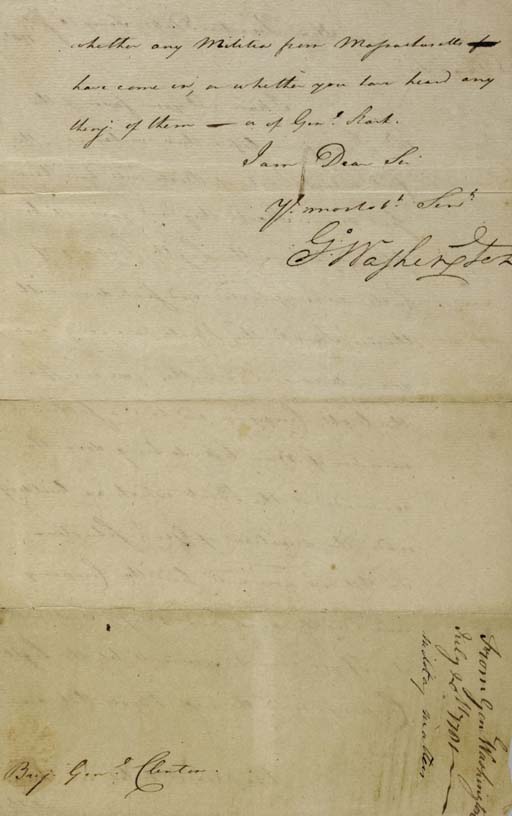 whether any Militia from Massachusetts
have come in, or whether you have heard any
thing of them — or of Genl. Stark.
I am Dear Sir
Yr. most obt. Servt.
Go Washington
Brig. Genl. Clinton.
From Gen Washington
July 1781
matters